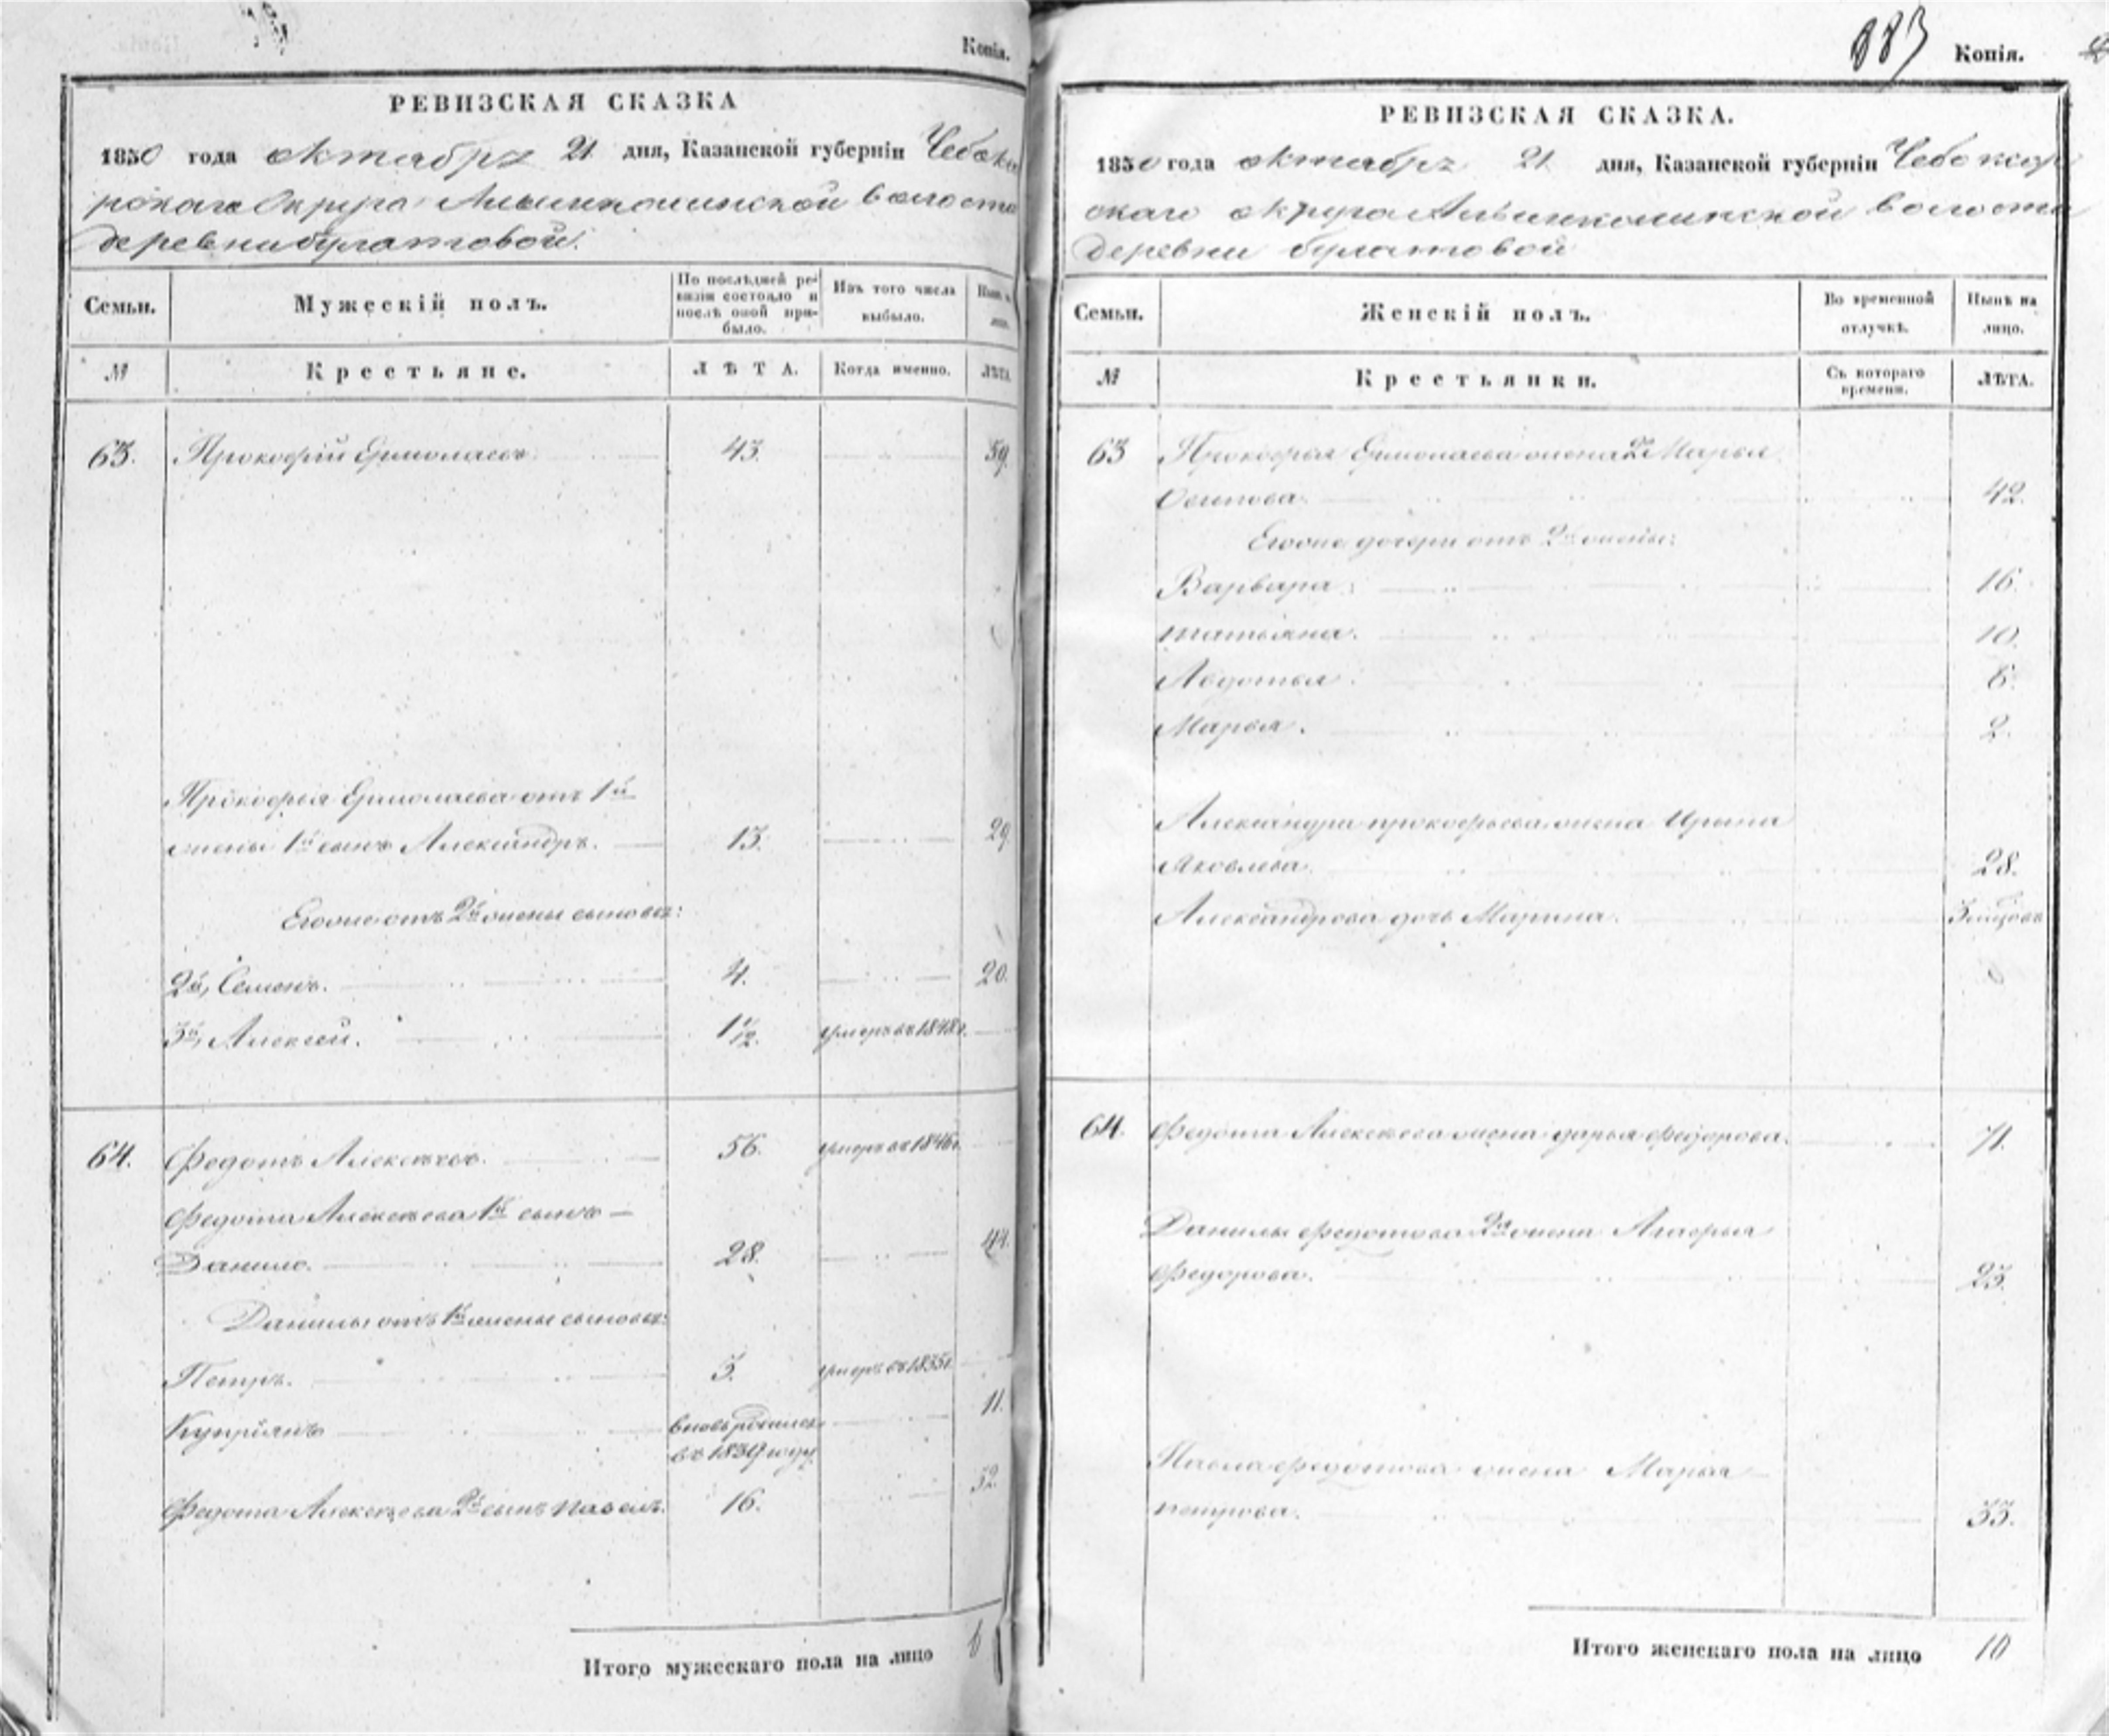 Копія.
РЕВИЗСКАЯ СКАЗКА
1850 года октября 21 дня, Казанской губерніи Чебокса
рскаго Округа Алымкасинской волости
деревни булатовой.
Семьи. Мужескій полъ. По послѣдней ре-визіи состояло и послѣ оной при-было. Изъ того числа выбыло. Нынѣ на лицо.
№ Крестьяне. ЛѢТА. Когда именно. ЛѢТА.
63. Прокофій Ермолаевъ. 43. 59.
Прокофья Ермолаева отъ 1й
жены 1й сынъ Александръ. 13. 29.
Егоже отъ 2й жены сыновья:
2й, Семенъ. 4. 20.
3й, Алексѣй. 1 1/2. умеръ въ 1848г.
64. Федотъ Алексѣевъ. 56. умеръ въ 1846г.
Федота Алексѣева 1й сынъ
Данило. 28. 44.
Данилы отъ 1й жены сыновья:
Петръ. 3. умеръ въ 1835г.
Купріянъ вновь родился 11.
въ 1839 году
Федота Алексѣева 2й сынъ павелъ. 16. 32.
Итого мужескаго пола на лицо 6
883 Копія.
РЕВИЗСКАЯ СКАЗКА.
1850 года октября 21 дня, Казанской губерніи Чебоксар
скаго округа Алымкасинской волости
деревни булатовой
Семьи. Женскій полъ. Во временной отлучкѣ. Нынѣ на лицо.
№ Крестьянки. Съ котораго времени. ЛѢТА.
63 Прокофья Ермолаева жена 2я Марья
Осипова. 42.
Егоже дочери отъ 2й жены:
Варвара. 16.
татьяна. 10.
Авдотья. 6.
Марья. 2.
Александра прокофьева жена Ирина
Яковлева. 28.
Александрова дочь Марина. 3 мѣсяцовъ
64. Федота Алексѣева жена дарья федорова. 71.
Данилы федотова 2я жена Агафья
федорова. 23.
Павла федотова жена Марья
петрова. 33.
Итого женскаго пола на лицо 10